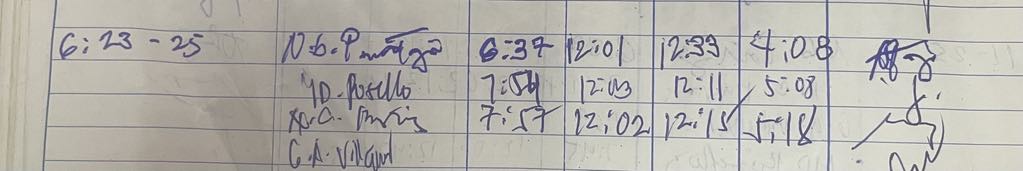 6:23-25 N.b. 6:37 12:01 12:33 4:08
YD. Posello 7:54 12:03 12:11 5:08
7:57 12:02 12:15 5:18
C.A. Villard